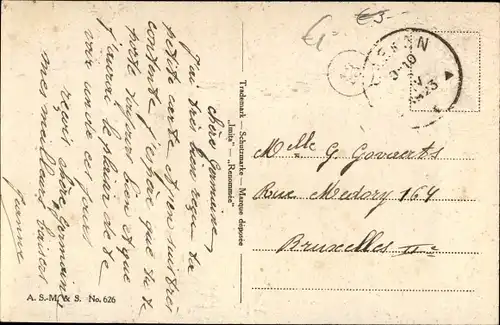 chère Germaine,
J'ai très bien reçu ta
petite carte et j'en suis très
contente j'espère que tu te
porte toujours bien et que
j'aurai le plaisir de te
voir un de ces jours
reçois chère Germaine
mes meilleurs baisers
Trademark – Schutzmarke – Marque déposée
„Imita" – „Renommée"
Melle G. Govaerts
Rue Medory 164
Bruxelles IIe
A. S.-M. & S. No. 626